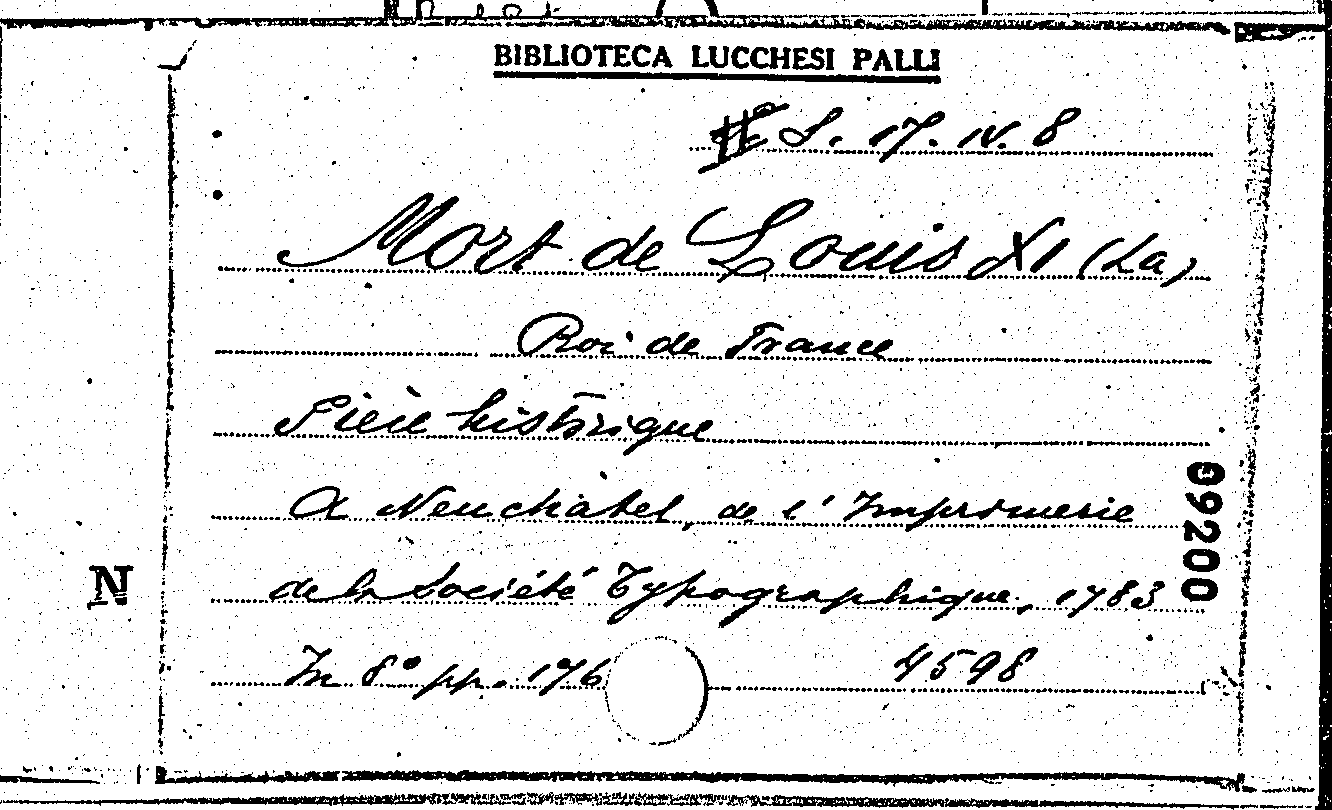 BIBLIOTECA LUCCHESI PALLI
S. 17. IV. 8
Mort de Louis XI (La)
Roi de France
Pièce historique
A Neuchâtel, de l'Imprimerie
09200
de la Société Typographique, 1783
N
In 8° pp. 176
4598